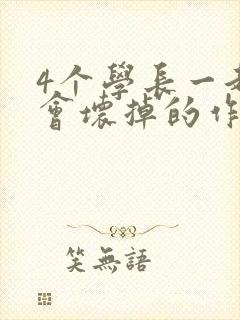 4个學長一
會壞掉的作
笑無語